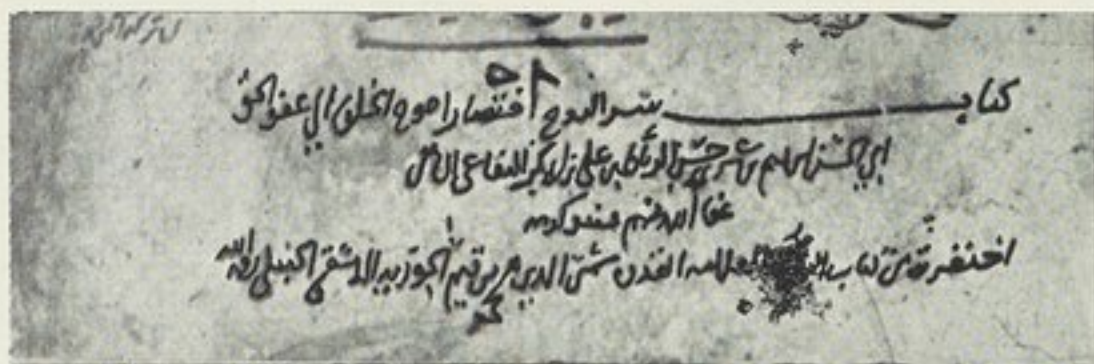 كتاب سر الروح اختصار احوج الخلق الى عفو الحق
ابي الحسن ابراهيم بن عمر بن حسن الرباط بن علي بن ابي بكر البقاعي الشافعي
عفا الله عنهم بمنه وكرمه
اختصره من كتاب الروح للعلامة القدوة شمس الدين محمد بن قيم الجوزية الدمشقي الحنبلي رحمه الله